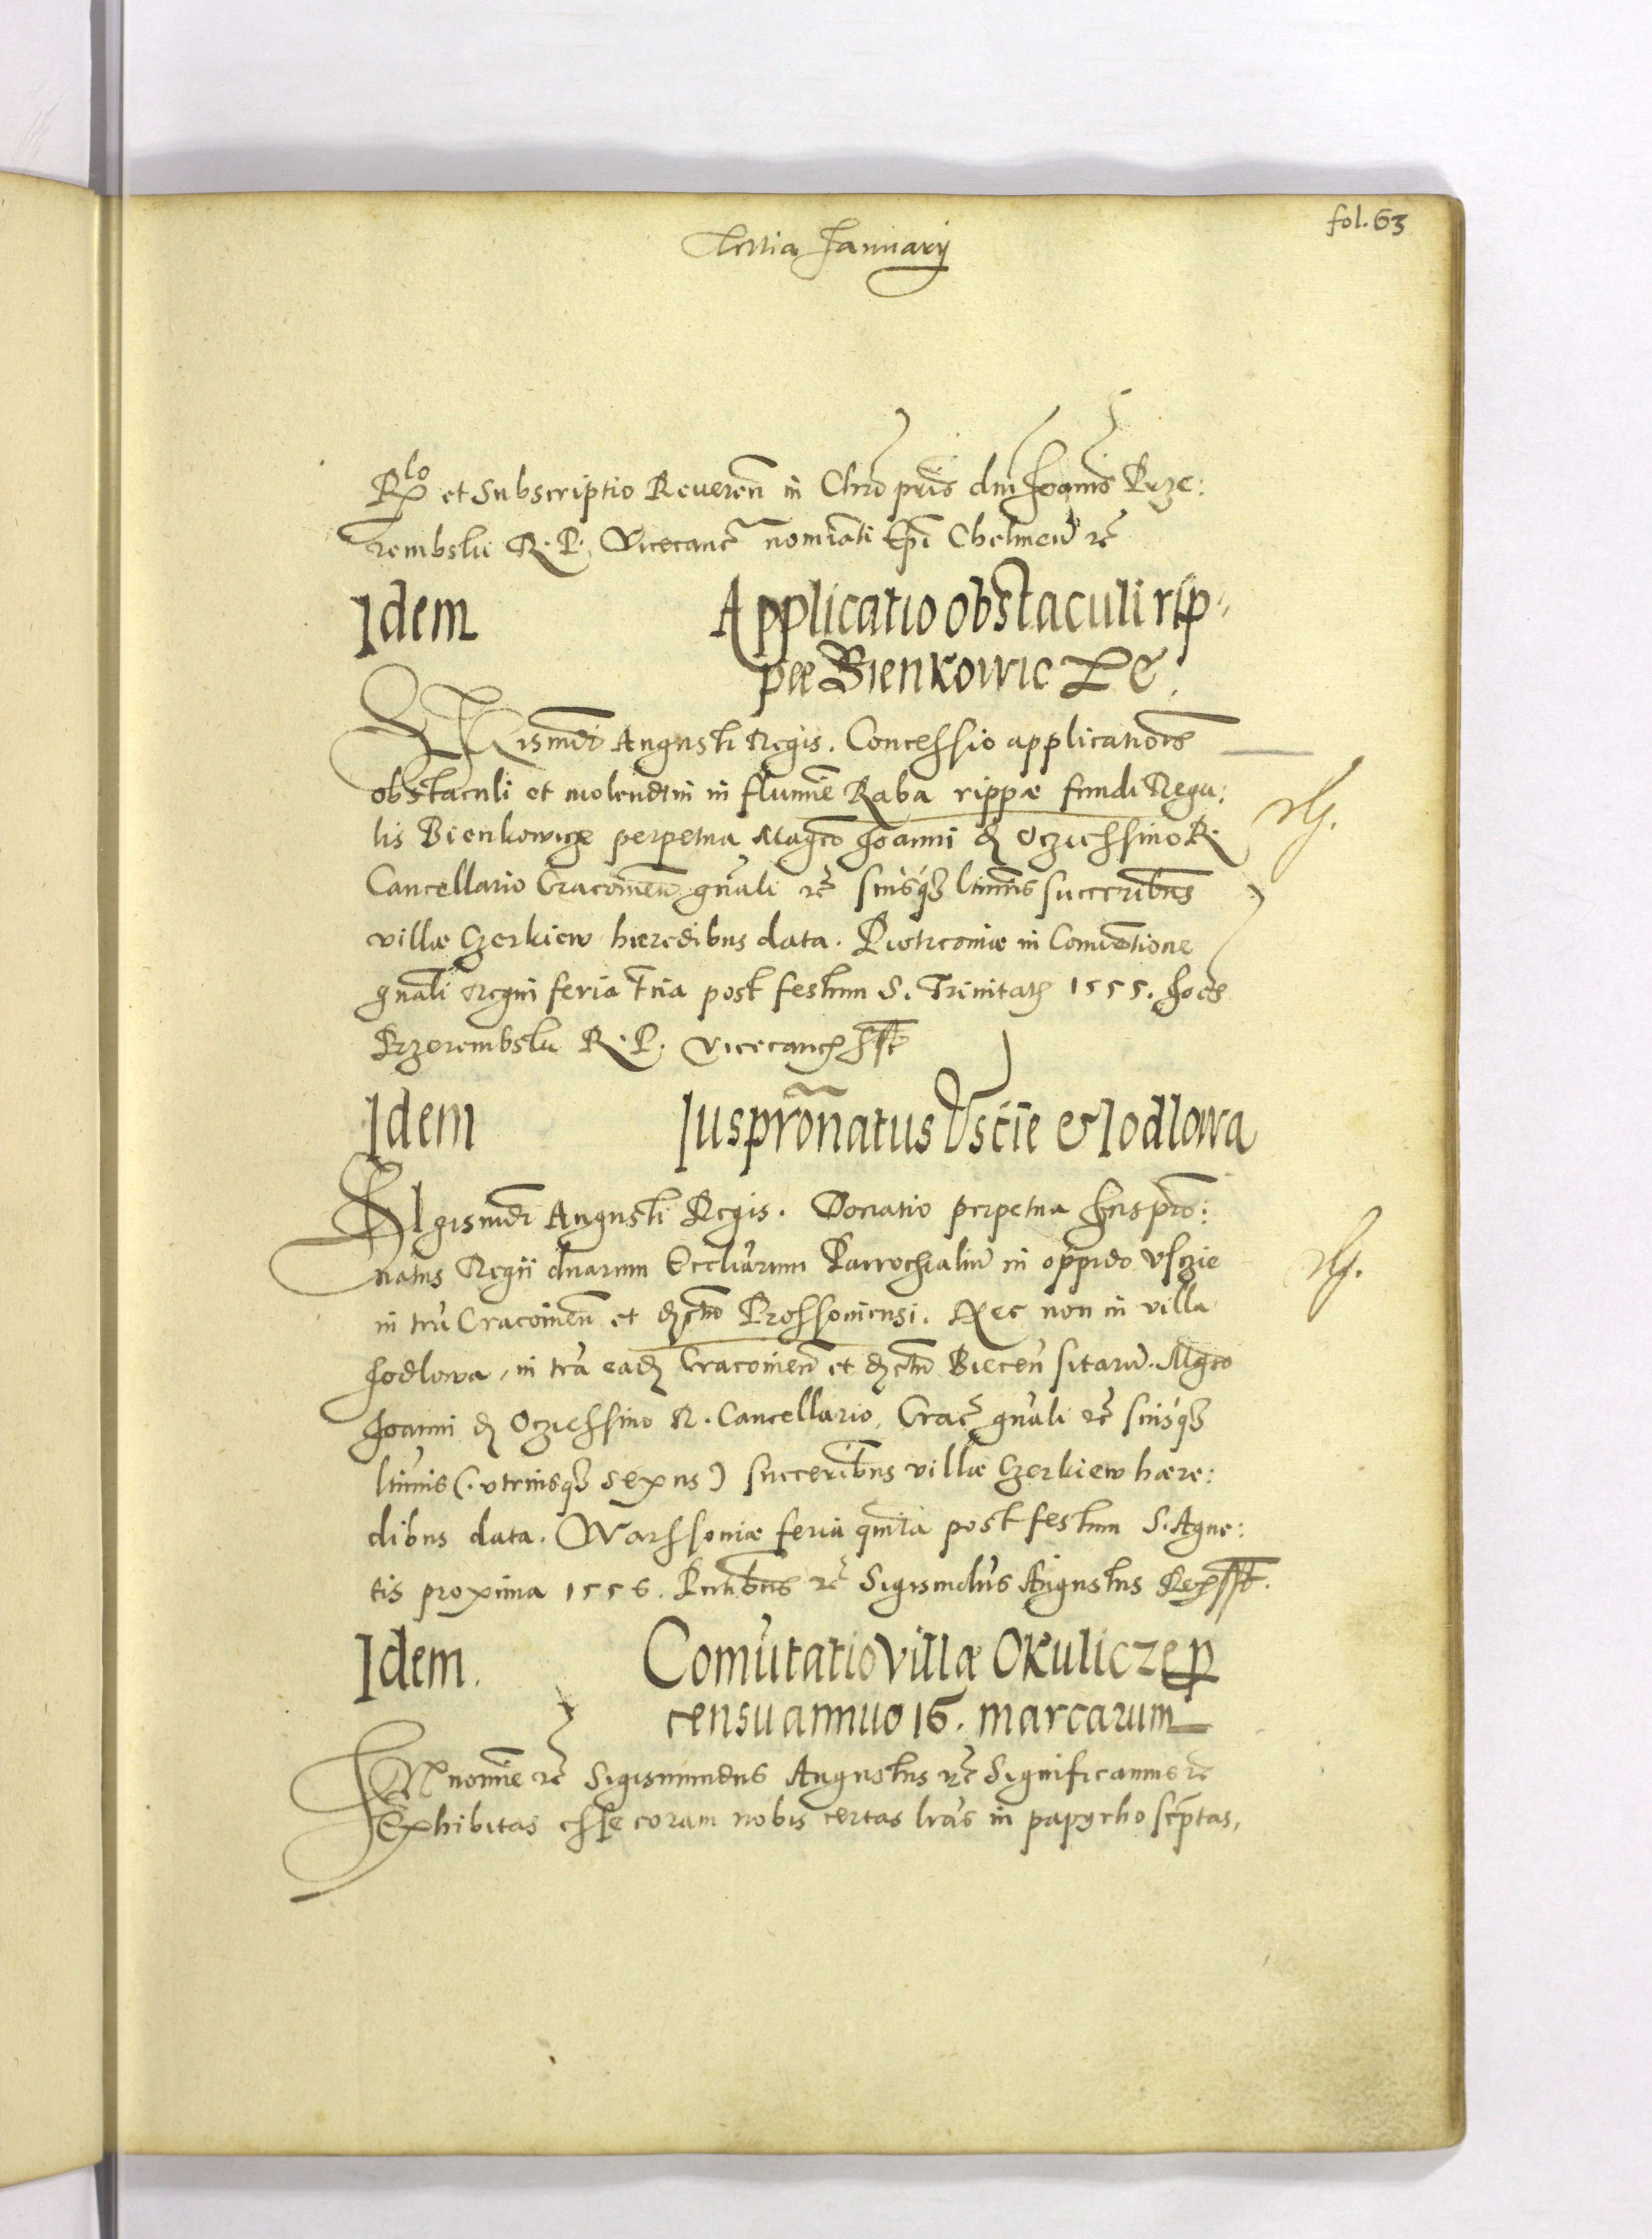 fol. 63
Tertia January
Rlo et Subscriptio Reveren̄ in Chro pr̄is dni Joannis Prze:
rembski R. P. Vicecanc̄ nomīati Ep̄i Chelmen̄ rc̄
Idem Applicatio obstaculi rip⸗
pæ Bienkowic
Sigismūdi Augusti Regis. Concessio applicatiōis
obstaculi et molendini in flumīe Raba rippæ fundi Rega:
lis Bienkowicze perpetua Magco Joanni d Ocziessino R.
Cancellario Cracovien̄ gnali rc̄ suisq3 ltimis succoribus
villæ Czerkiew hæredibus data. Piotrcoviæ in Conventione
gnali Regni feria tria post festum S. Trinitatis 1555. Joēs
Przerembski R. P. vicecanc̄ sst
Idem Juspron̄atus Vscie & Jodlowa
Sigismūdi Augusti Regis. Donatio perpetua Juspro:
natus Regii duarum Eccliarum Parrochialiū in oppido Vsczie
in tra Cracovien̄ et dictū Prossoviensi. Nec non in villa
Jodlowa, in tra ead Cracovien̄ et dictū Biecen̄ sitarū. Mgco
Joanni d Oczießino R. Cancellario, Crac̄ gnali rc̄ suisq3
ltimis (. utriusq3 sexus) succoribus villæ Czerkiew hære:
dibus data. Warssoviæ feria quinta post festum S. Agne:
tis proxima 1556. Pntibus rc̄ Sigismdus Augustus Rex sst.
Idem. Comūtatio villæ Okulicze p
censu annuo 16. marcarum
In nomīe rc̄ Sigismundus Augustus rc̄ Significamus rc̄
Exhibitas esse coram nobis certas lras in papyrho scptas,